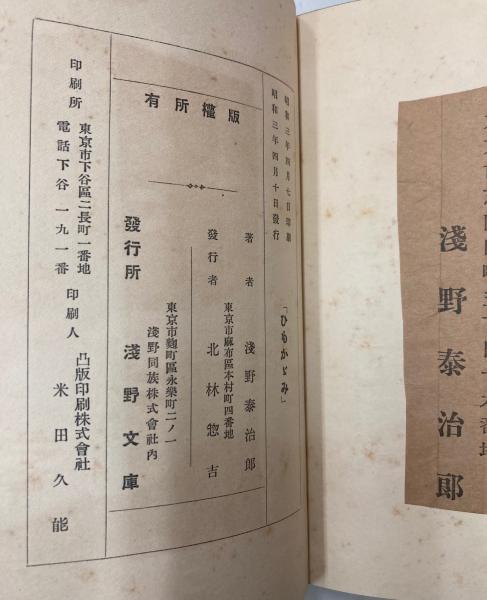 淺野泰治郎
昭和三年四月七日印刷
昭和三年四月十日發行
「ひもかゞみ」
版權所有
著者 淺野泰治郎
東京市麻布區本村町四番地
發行者 北林惣吉
東京市麴町區永樂町二ノ一
淺野同族株式會社內
發行所 淺野文庫
印刷人 米田久能
凸版印刷株式會社
東京市下谷區二長町一番地
印刷所
電話下谷一九一番